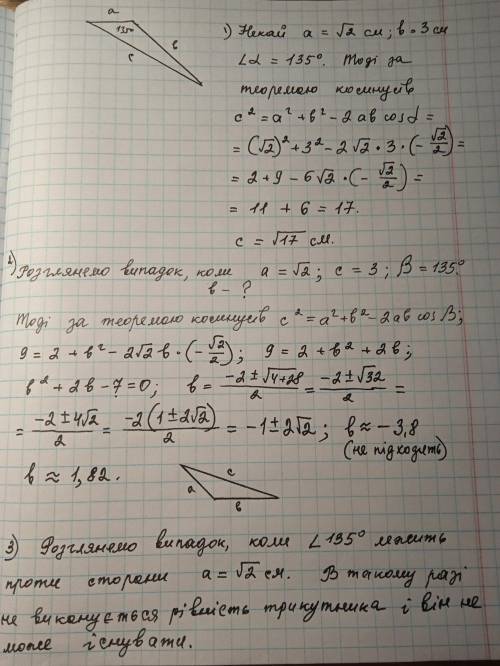 a
135°
b
c
1) Нехай a = √2 см; b = 3 см
∠α = 135°. Тоді за
теоремою косинусів
c² = a² + b² - 2ab cos α =
= (√2)² + 3² - 2√2 • 3 • (-√2/2) =
= 2 + 9 - 6√2 • (-√2/2) =
= 11 + 6 = 17.
c = √17 см.
2) Розглянемо випадок, коли a = √2; c = 3; β = 135°.
b - ?
Тоді за теоремою косинусів c² = a² + b² - 2ab cos β;
9 = 2 + b² - 2√2 b • (-√2/2); 9 = 2 + b² + 2b;
b² + 2b - 7 = 0; b = (-2 ± √4+28)/2 = (-2 ± √32)/2 =
= (-2 ± 4√2)/2 = -2(1 ± 2√2)/2 = -1 ± 2√2; b ≈ -3,8
(не підходить)
b ≈ 1,82.
c
a
b
3) Розглянемо випадок, коли ∠135° лежить
проти сторони a = √2 см. В такому разі
не виконується рівність трикутника і він не
може існувати.